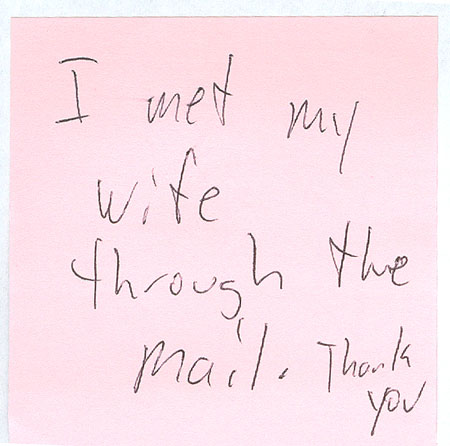 I met my
wife
through the
mail. Thank
you